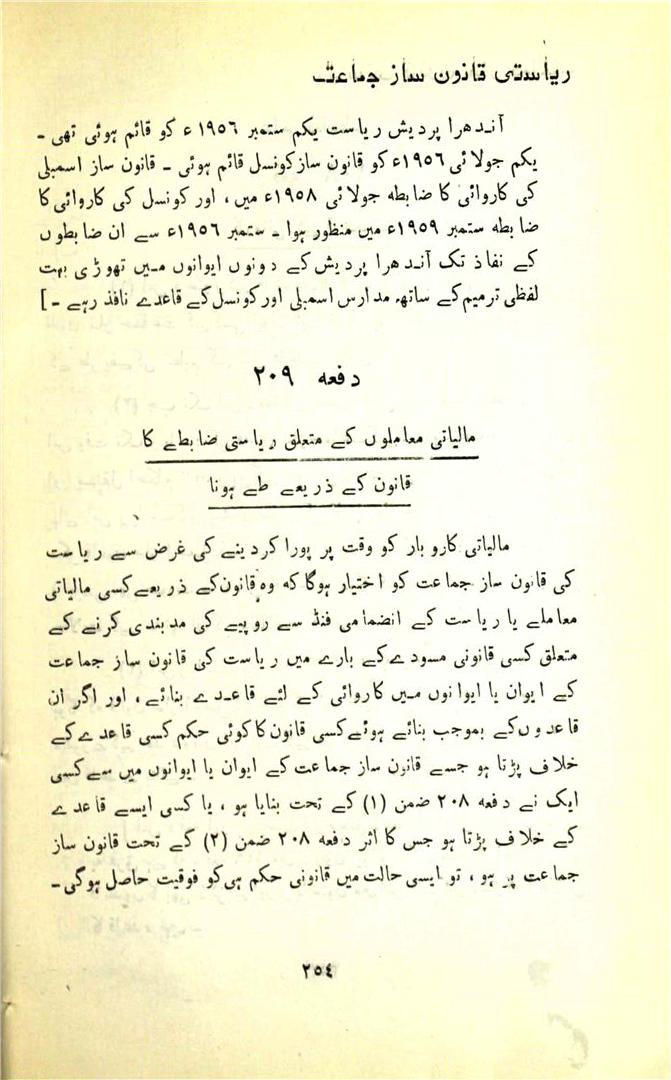 ریاستی قانون ساز جماعت
آندھرا پردیش ریاست یکم ستمبر ۱۹۵٦ء کو قائم ہوئی تھی ۔
یکم جولائی ۱۹۵٦ء کو قانون ساز کونسل قائم ہوئی ۔ قانون ساز اسمبلی
کی کاروائی کا ضابطہ جولائی ۱۹۵۸ء میں ، اور کونسل کی کاروائی کا
ضابطہ ستمبر ۱۹۵۹ء میں منظور ہوا ۔ ستمبر ۱۹۵٦ء سے ان ضابطوں
کے نفاذ تک آندھرا پردیش کے دونوں ایوانوں میں تھوڑی بہت
لفظی ترمیم کے ساتھ مدارس اسمبلی اور کونسل کے قاعدے نافذ رہے ۔ ]
دفعہ ۲۰۹
مالیاتی معاملوں کے متعلق ریاستی ضابطے کا
قانون کے ذریعے طے ہونا
مالیاتی کاروبار کو وقت پر پورا کردینے کی غرض سے ریاست
کی قانون ساز جماعت کو اختیار ہوگا کہ وہ قانون کے ذریعے کسی مالیاتی
معاملے یا ریاست کے انضمامی فنڈ سے روپیے کی مدبندی کرنے کے
متعلق کسی قانونی مسودے کے بارے میں ریاست کی قانون ساز جماعت
کے ایوان یا ایوانوں میں کاروائی کے لئے قاعدے بنائے ، اور اگر ان
قاعدوں کے بموجب بنائے ہوئے کسی قانون کا کوئی حکم کسی قاعدے کے
خلاف پڑتا ہو جسے قانون ساز جماعت کے ایوان یا ایوانوں میں سے کسی
ایک نے دفعہ ۲۰۸ ضمن (۱) کے تحت بنایا ہو ، یا کسی ایسے قاعدے
کے خلاف پڑتا ہو جس کا اثر دفعہ ۲۰۸ ضمن (۲) کے تحت قانون ساز
جماعت پر ہو ، تو ایسی حالت میں قانونی حکم ہی کو فوقیت حاصل ہوگی ۔
۲۵٤